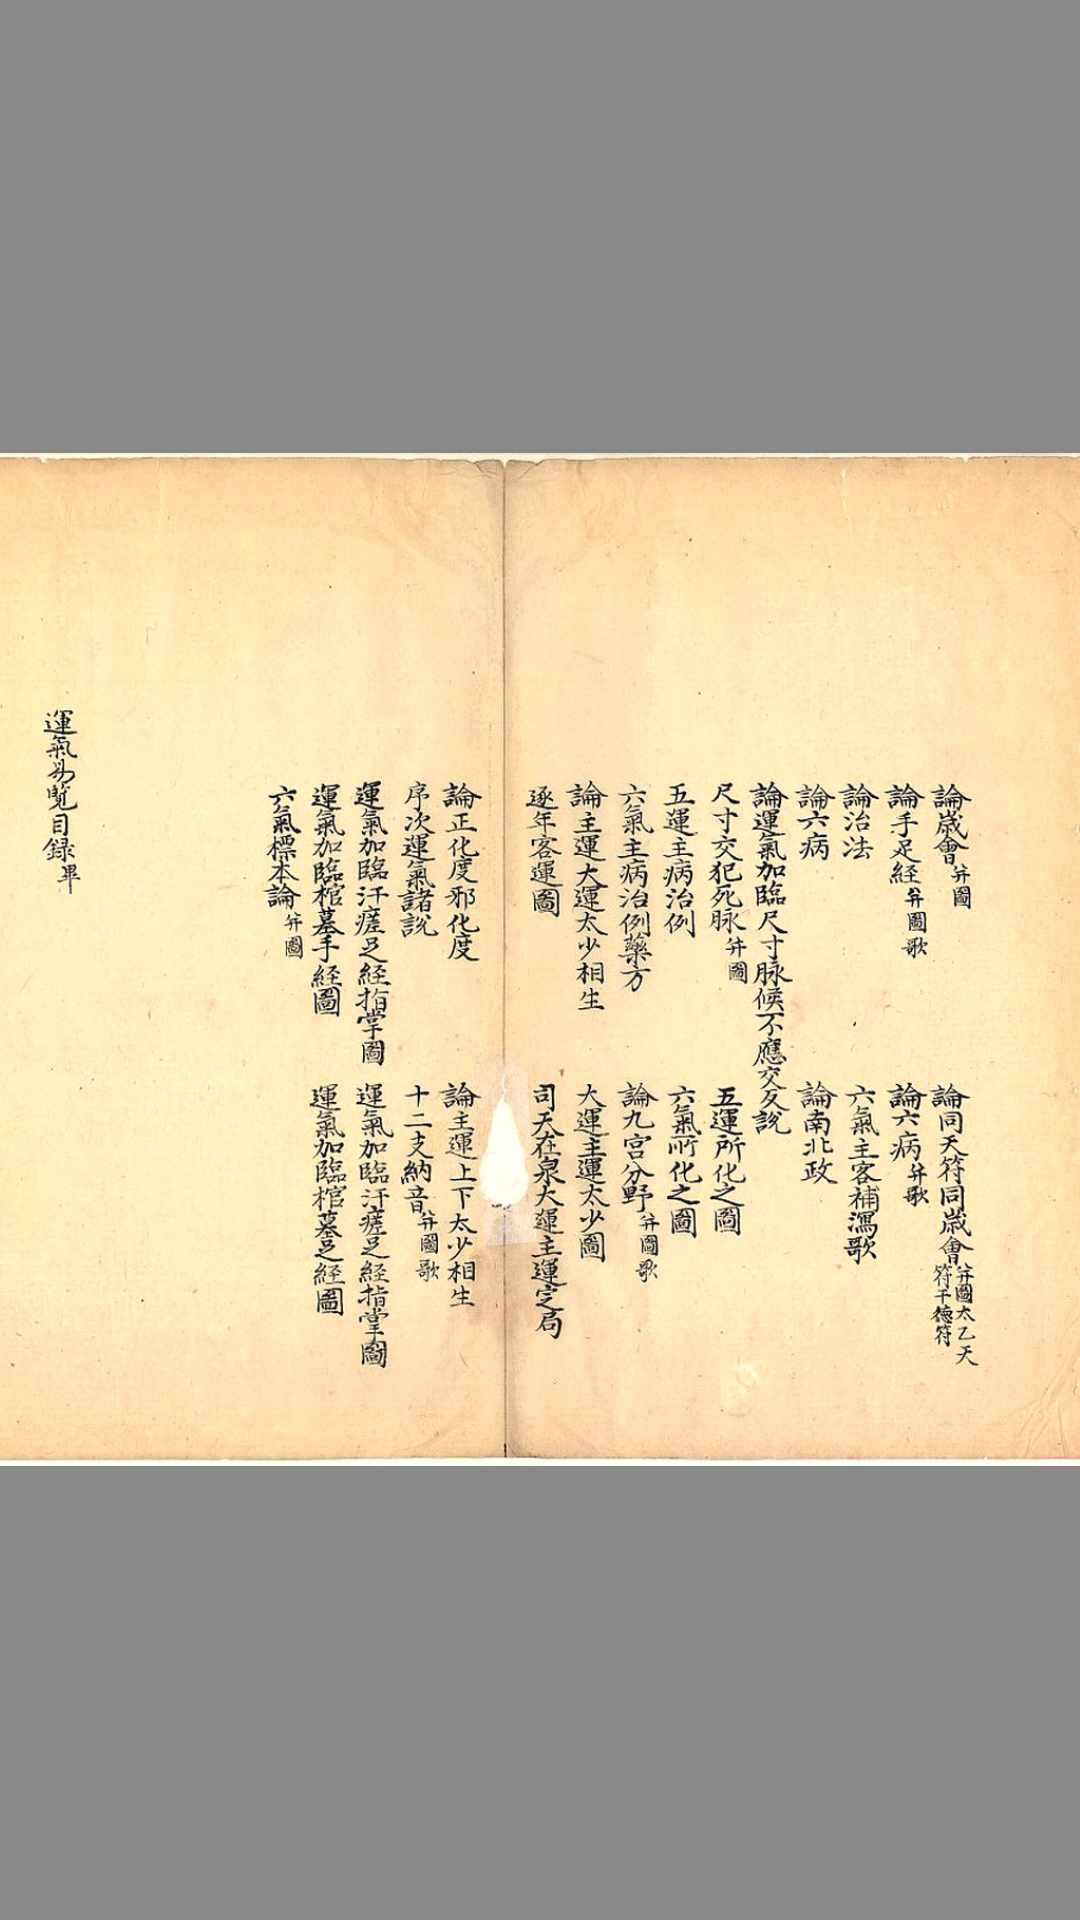 論歲會 并圖　論同天符同歲會 并圖太乙天符干德符
論手足経 并圖歌　論六病 并歌
論治法　六氣主客補瀉歌
論六病　論南北政
論運氣加臨尺寸脉候不應交反説
尺寸交犯死脉 并圖　五運所化之圖
五運主病治例　六氣所化之圖
六氣主病治例藥方　論九宮分野 并圖歌
論主運大運太少相生　大運主運太少圖
逐年客運圖　司天在泉大運主運定局
論正化度邪化度　論主運上下太少相生
序次運氣諸說　十二支納音 并圖歌
運氣加臨汗瘥足経指掌圖　運氣加臨汗瘥足経指掌圖
運氣加臨棺墓手経圖　運氣加臨棺墓足経圖
六氣標本論 并圖
運氣易覧目録畢